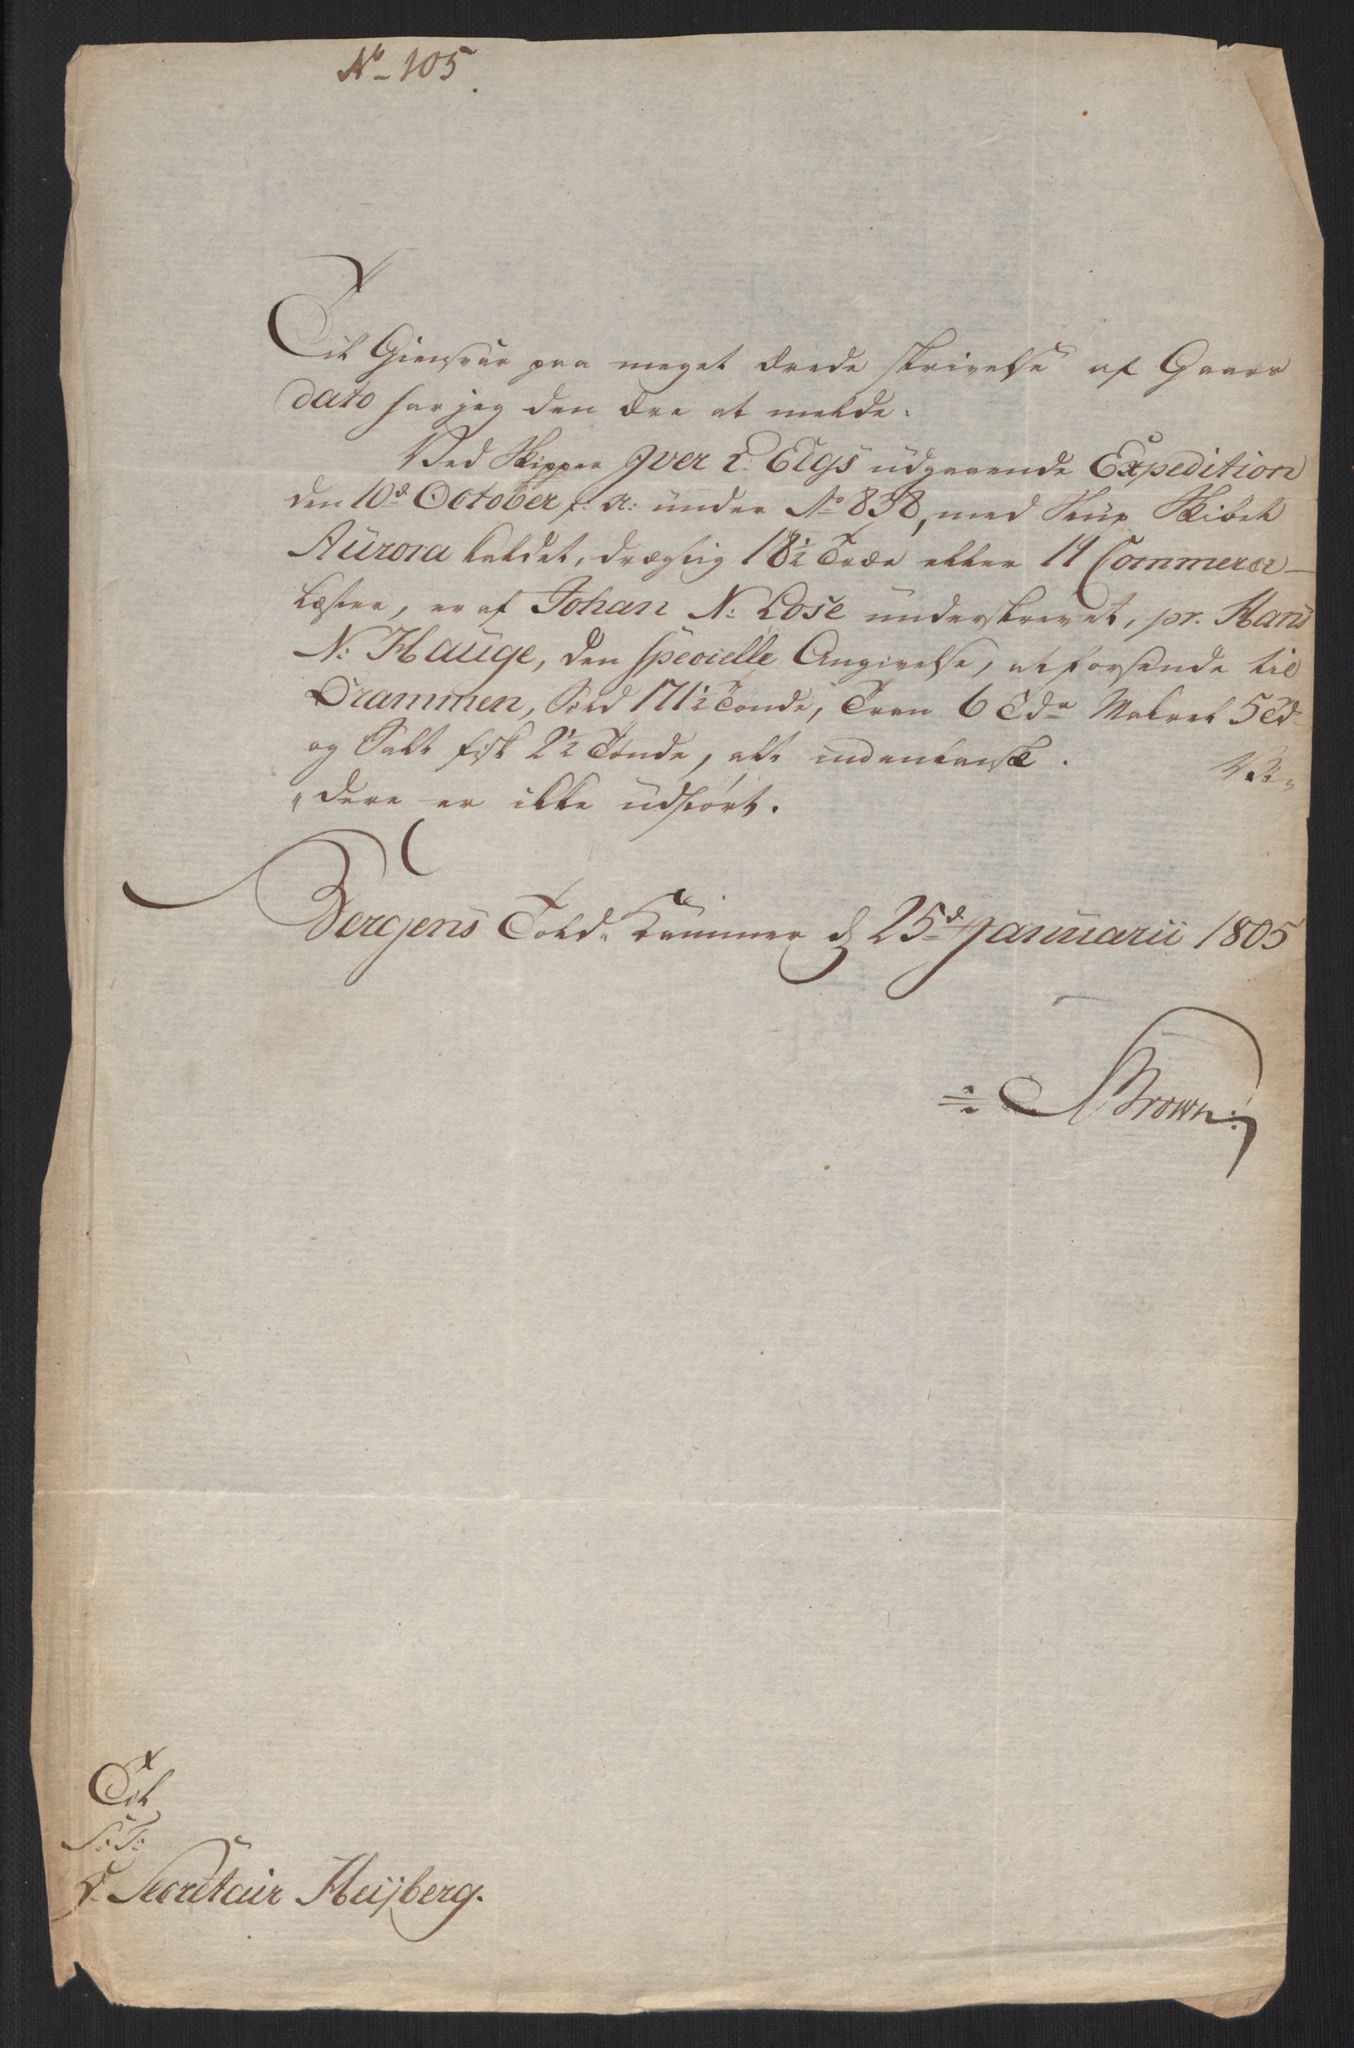 No 105.
Til Giensvar paa meget ærede skrivelse af Gaars
dato har jeg den ære at melde:
Ved Skipper Iver L: Elgs udgaaende Expedition
den 10de October f: A: under No 838, med Skibet
Aurora kaldet, drægtig 18½ Træe eller 19 Commerce
Læster, er af Johan N: Lose underskrevet, pr. Hans
N: Hauge, den specielle Angivelse, at forsende til
Drammen, Sild 171½ Tønde, Tran 6 Tdr Makrel 5 Td
og Salt fisk 2½ Tønde, alt indenlansk. Vi-
dere er ikke udført.
Bergens Told-Kammer d 25de Januarii 1805
Brown
Til
S: T:
Hr Secretair Heÿberg.